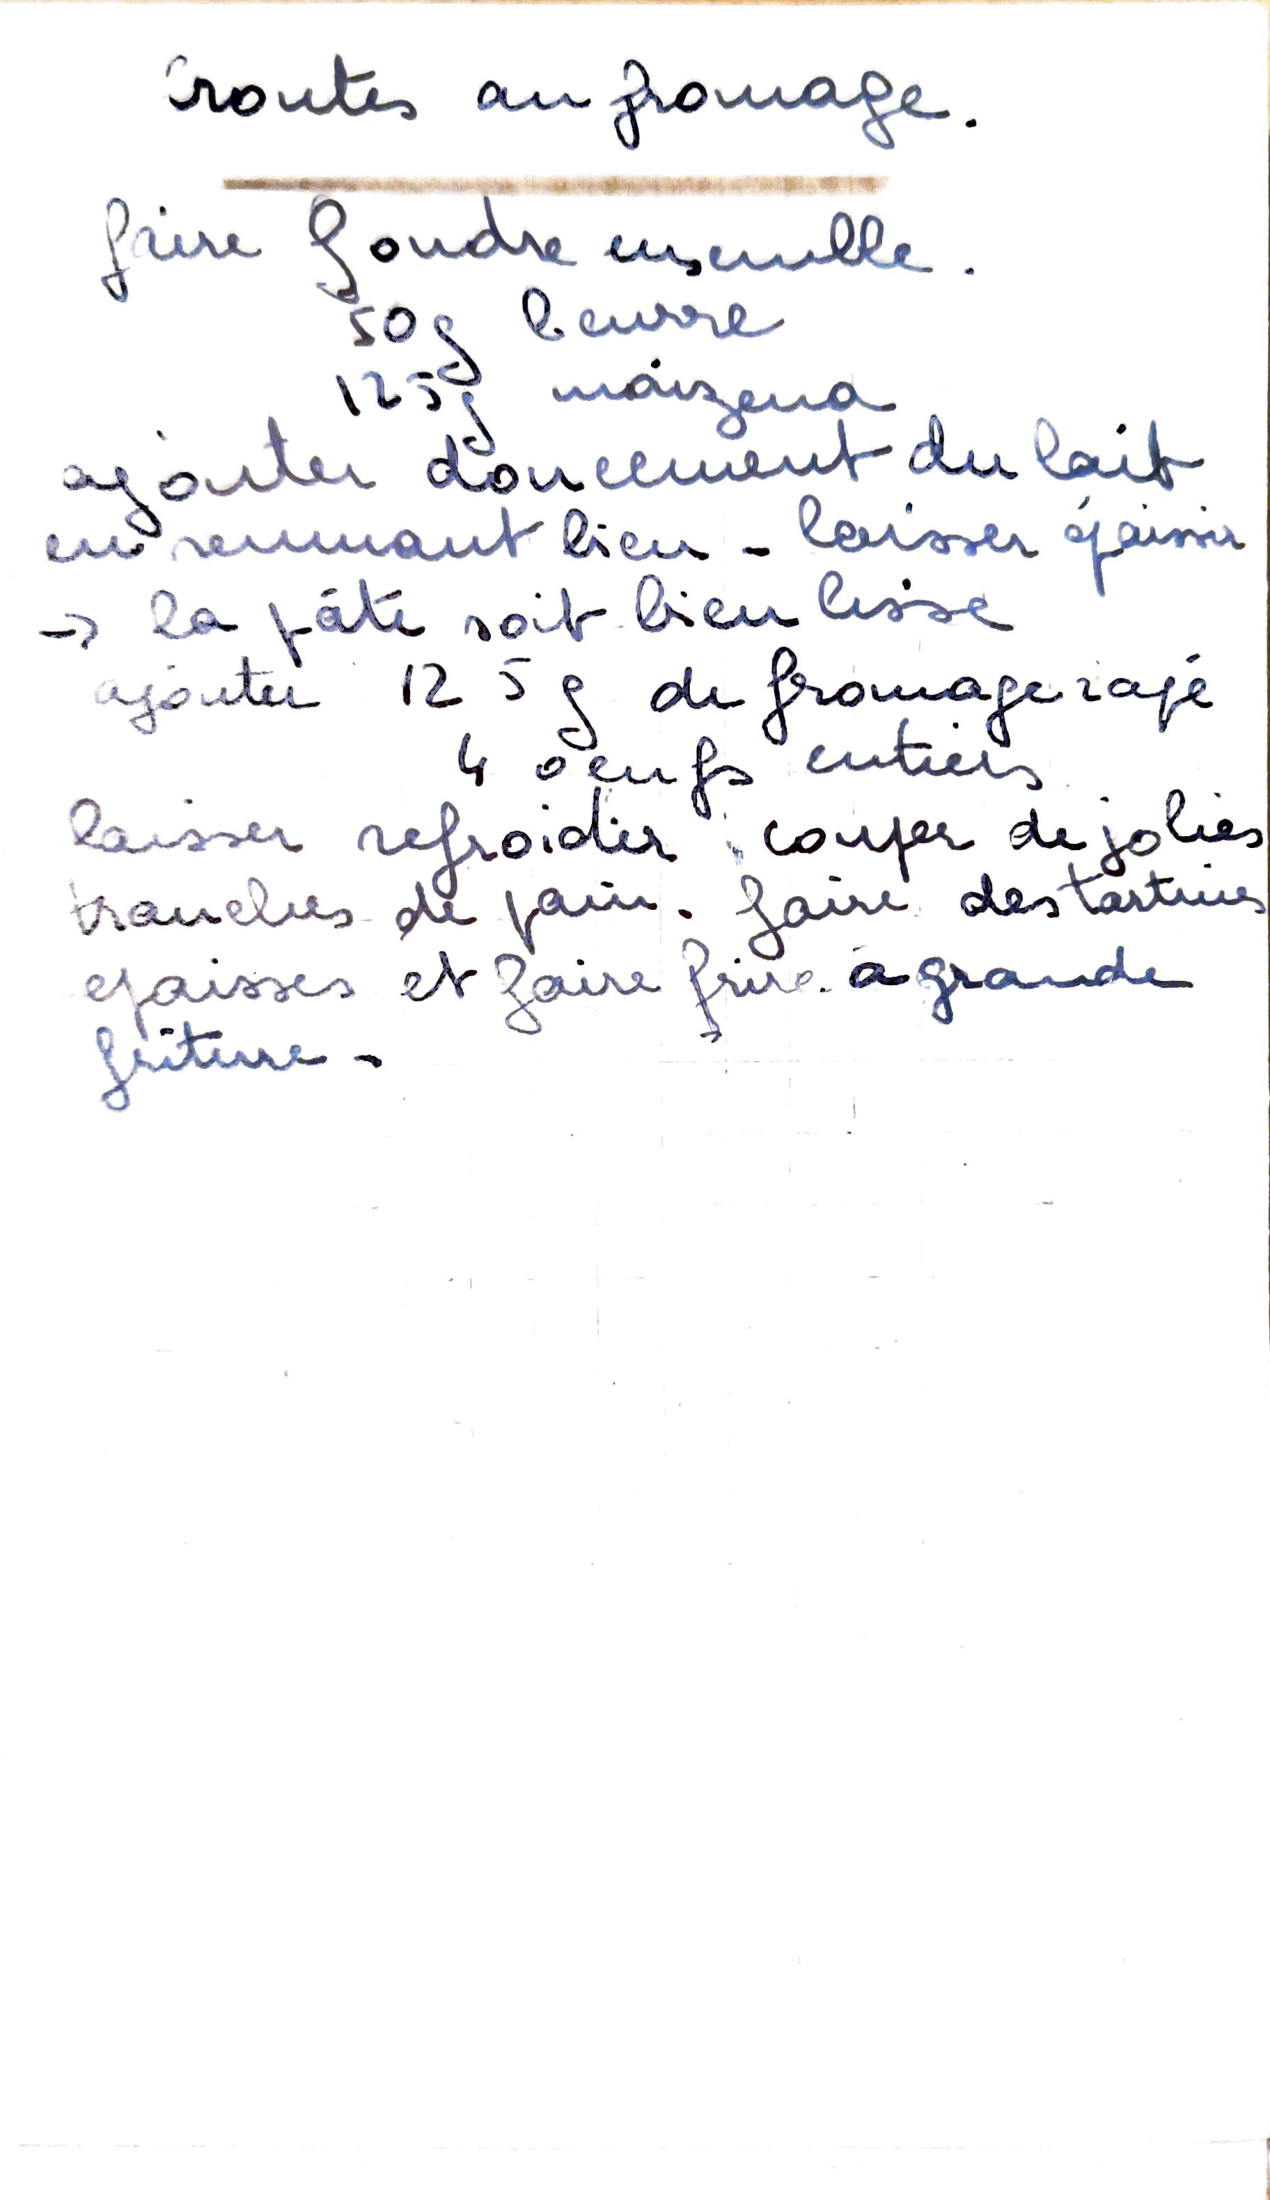 Croutes au fromage.
faire fondre ensemble.
50g beurre
125g maïzena
ajouter doucement du lait
en remuant bien - laisser épaissir
→ la pâte soit bien lisse
ajouter 125g de fromage rapé
4 oeufs entiers
laisser refroidir. couper de jolies
tranches de pain. faire des tartines
epaisses et faire frire à grande
friture -